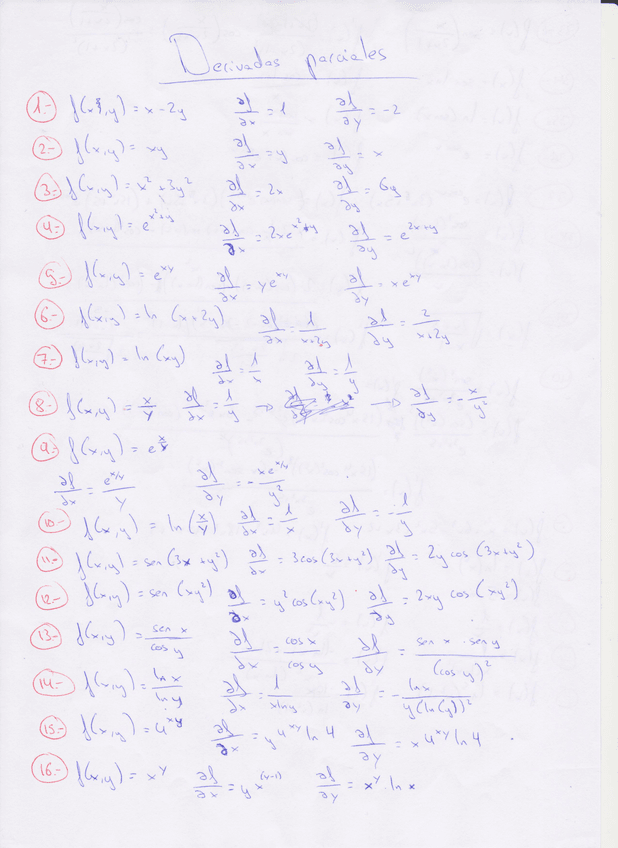 Derivadas parciales
1.- f(x,y) = x - 2y ∂f/∂x = 1 ∂f/∂y = -2
2.- f(x,y) = xy ∂f/∂x = y ∂f/∂y = x
3.- f(x,y) = x² + 3y² ∂f/∂x = 2x ∂f/∂y = 6y
4.- f(x,y) = e^(x²+y) ∂f/∂x = 2xe^(x²+y) ∂f/∂y = e^(2x+y)
5.- f(x,y) = e^(xy) ∂f/∂x = ye^(xy) ∂f/∂y = xe^(xy)
6.- f(x,y) = ln (x+2y) ∂f/∂x = 1/(x+2y) ∂f/∂y = 2/(x+2y)
7.- f(x,y) = ln (xy) ∂f/∂x = 1/x ∂f/∂y = 1/y
8.- f(x,y) = x/y ∂f/∂x = 1/y → → ∂f/∂y = -x/y²
9.- f(x,y) = e^(x/y)
∂f/∂x = e^(x/y)/y ∂f/∂y = -xe^(x/y)/y²
10.- f(x,y) = ln(x/y) ∂f/∂x = 1/x ∂f/∂y = -1/y
11.- f(x,y) = sen(3x+y²) ∂f/∂x = 3cos(3x+y²) ∂f/∂y = 2y cos(3x+y²)
12.- f(x,y) = sen (xy²) ∂f/∂x = y² cos(xy²) ∂f/∂y = 2xy cos(xy²)
13.- f(x,y) = sen x/cos y ∂f/∂x = cos x/cos y ∂f/∂y = sen x · sen y/(cos y)²
14.- f(x,y) = ln x/ln y ∂f/∂x = 1/(x ln y) ∂f/∂y = -ln x/(y(ln(y))²)
15.- f(x,y) = 4^(xy) ∂f/∂x = y 4^(xy) ln 4 ∂f/∂y = x 4^(xy) ln 4
16.- f(x,y) = x^y ∂f/∂x = y x^(y-1) ∂f/∂y = x^y · ln x